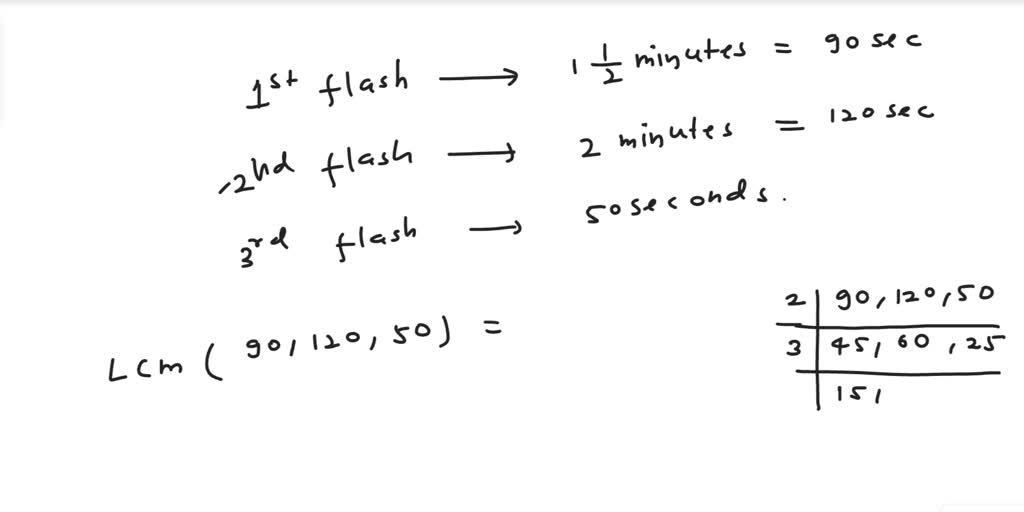 1st flash → 1 1/2 minutes = 90 sec
2nd flash → 2 minutes = 120 sec
3rd flash → 50 seconds.
Lcm ( 90, 120, 50 ) =
2 | 90, 120, 50
3 | 45, 60, 25
| 15,